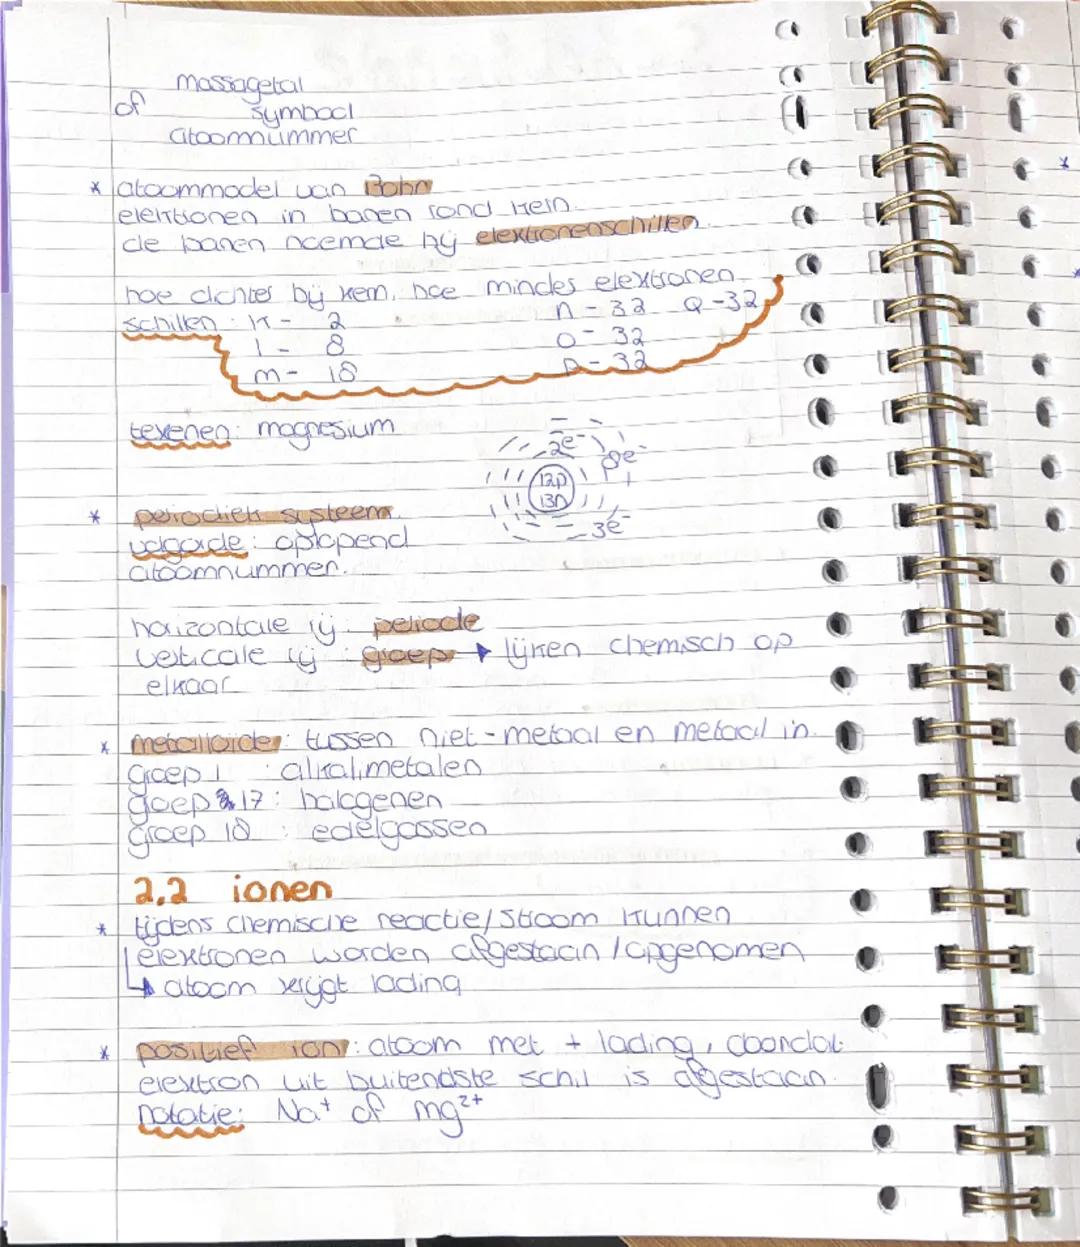 massagetal
of symbool
atoomnummer
* atoommodel van Bohr
elektronen in banen rond kern.
de banen noemde hij elektronenschillen.
hoe dichter bij kern, hoe minder elektronen
schillen: K - 2 n - 32 Q - 32
l - 8 o - 32
m - 18 p - 32
tekenen: magnesium
2e-
8e-
12p
13n
3e-
* periodiek systeem
volgorde: oplopend
atoomnummer.
horizontale rij: periode
verticale rij: groep → lijken chemisch op
elkaar
* metalloïden: tussen niet-metaal en metaal in.
groep 1 : alkalimetalen
groep 17: halogenen
groep 18 : edelgassen
2.2 ionen
* tijdens chemische reactie/stroom kunnen
elektronen worden afgestaan/opgenomen
→ atoom krijgt lading
* positief ion: atoom met + lading, doordat
elektron uit buitenste schil is afgestaan.
notatie: Na⁺ of mg²⁺